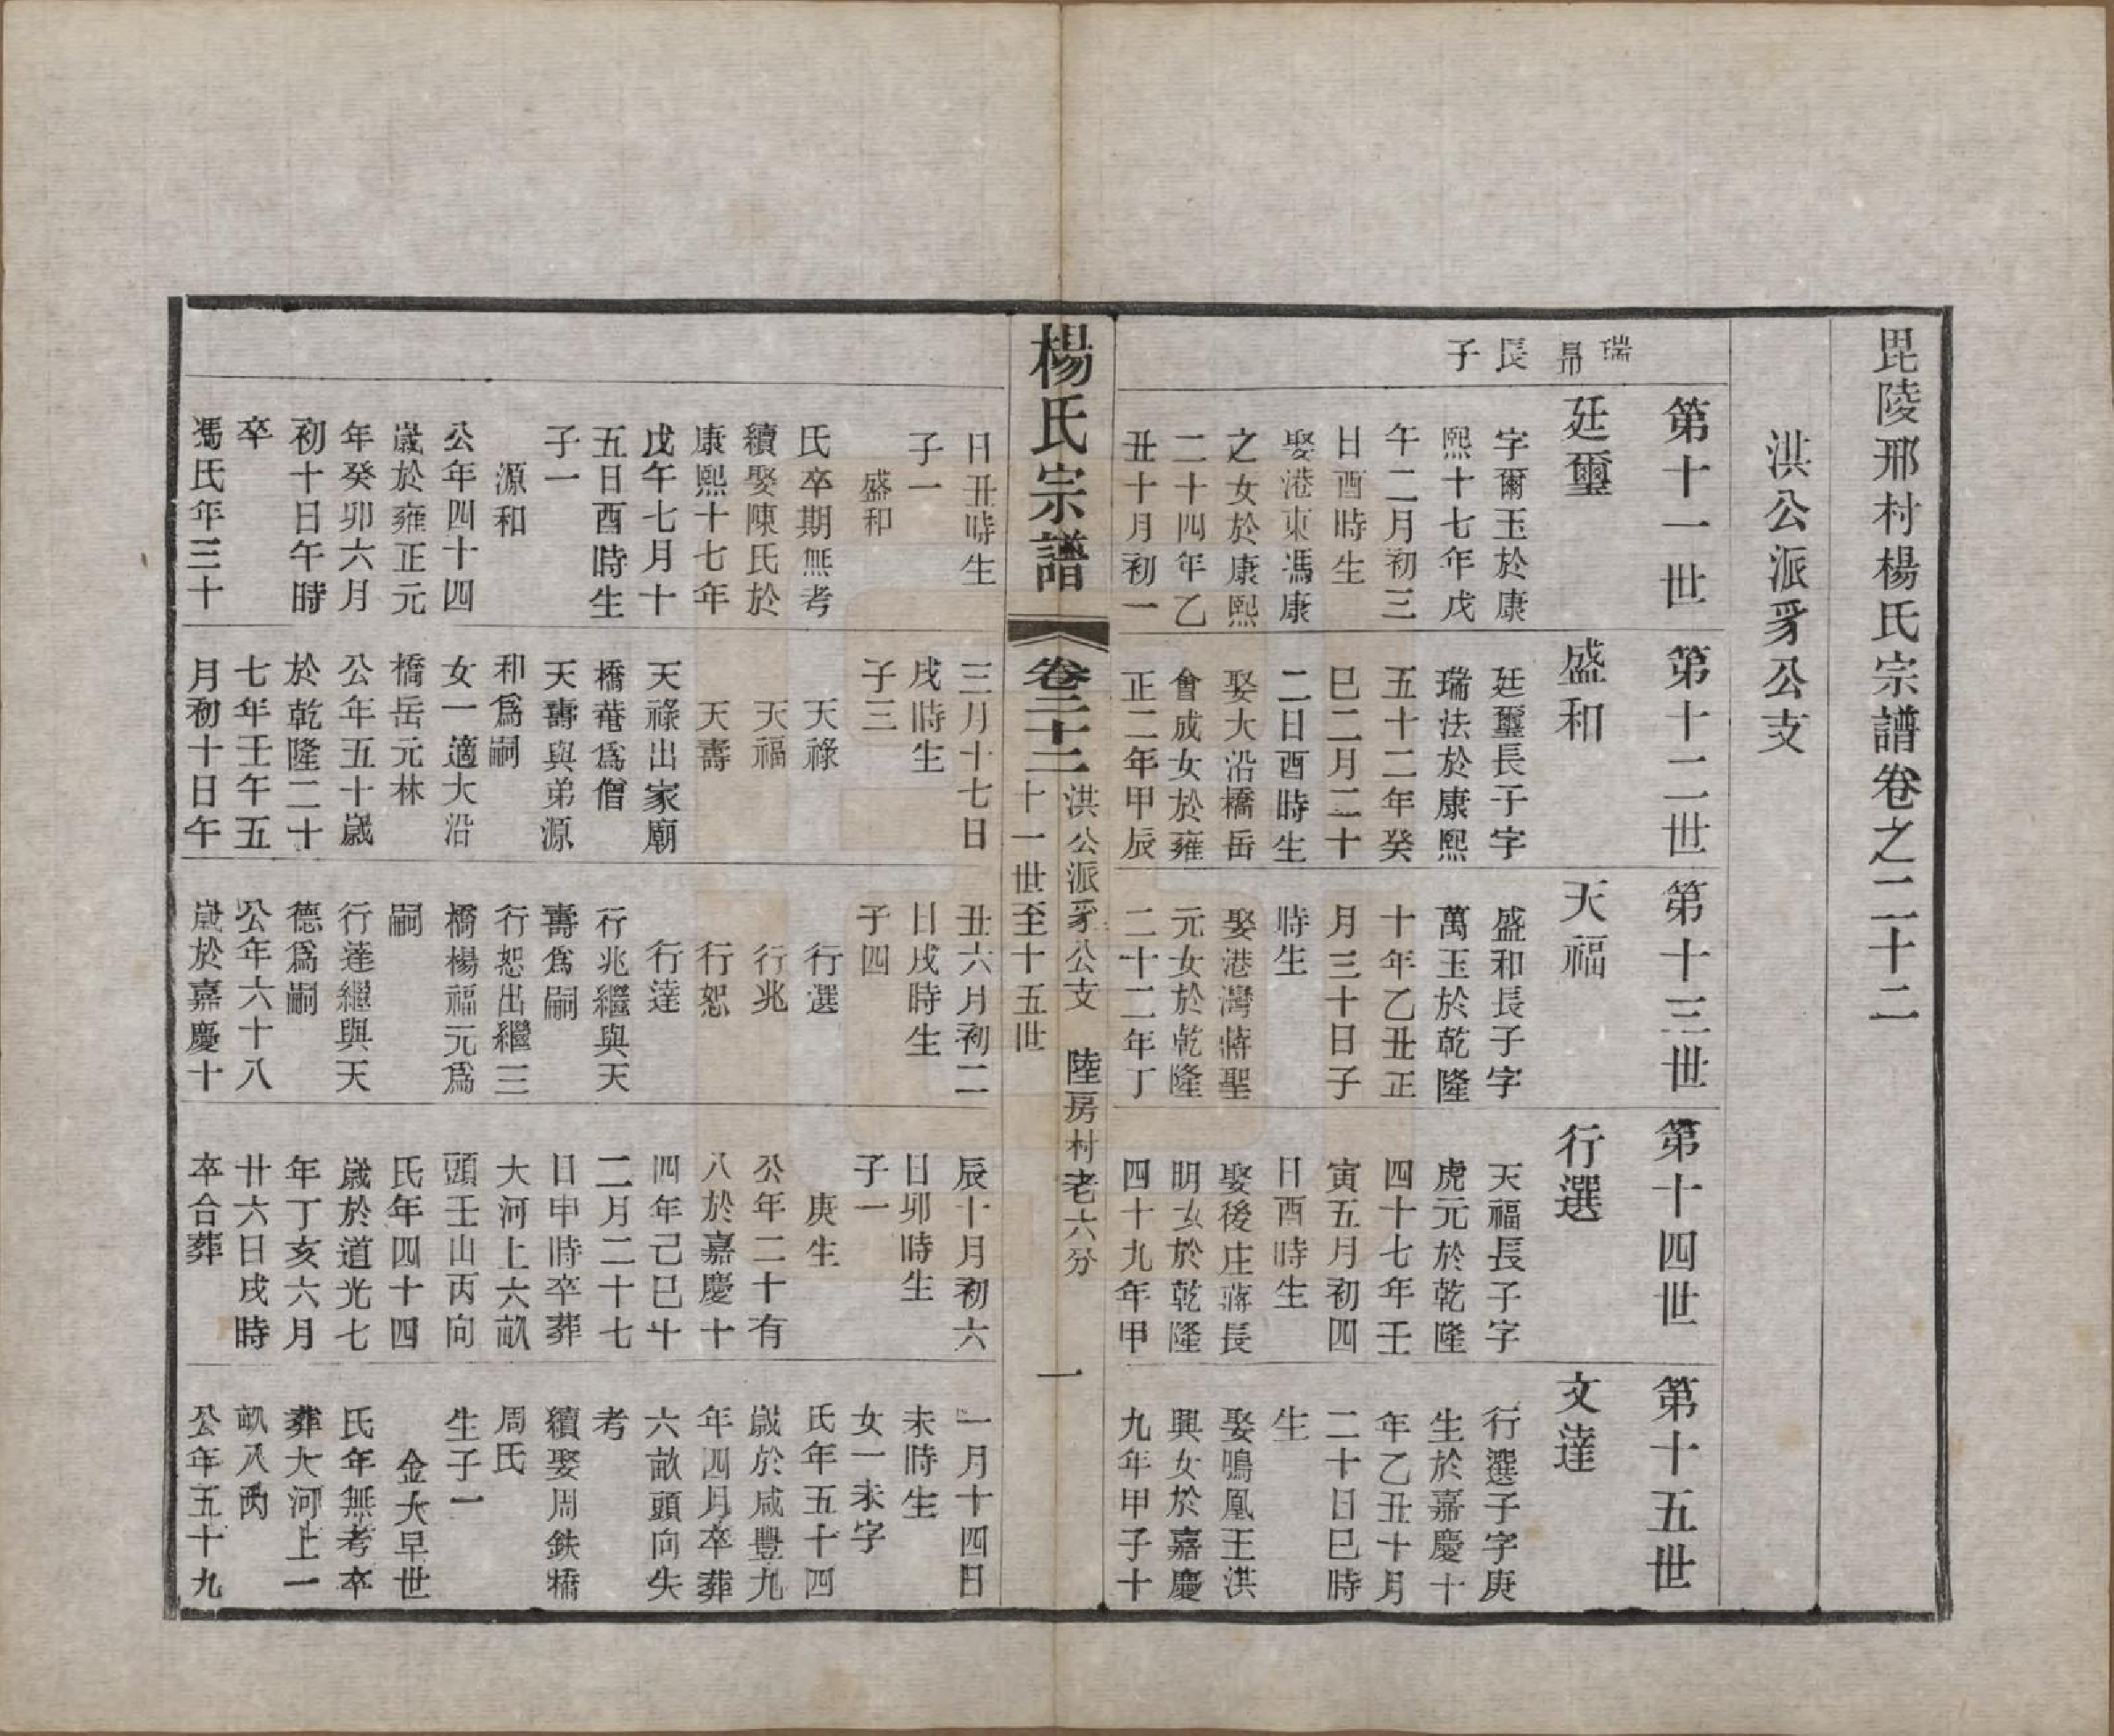 毘陵邢村楊氏宗譜卷之二十二
洪公派豸公支
瑞
長
子
第十一世
廷璽
字爾玉於康
熙十七年戊
午二月初三
日酉時生
娶港東馮康
之女於康熙
二十四年乙
丑十月初一
第十二世
盛和
廷璽長子字
瑞法於康熙
五十二年癸
巳二月二十
二日酉時生
娶大沿橋岳
會成女於雍
正二年甲辰
第十三世
天福
盛和長子字
萬玉於乾隆
十年乙丑正
月三十日子
時生
娶港灣蔣聖
元女於乾隆
二十二年丁
第十四世
行選
天福長子字
虎元於乾隆
四十七年壬
寅五月初四
日酉時生
娶後庄蔣長
明女於乾隆
四十九年甲
第十五世
文達
行選子字庚
生於嘉慶十
年乙丑十月
二十日巳時
生
娶鳴凰王洪
興女於嘉慶
九年甲子十
楊氏宗譜
卷二十二
洪公派豸公支 陸房村老六分
十一世至十五世
一
日丑時生
子一
盛和
氏卒期無考
續娶陳氏於
康熙十七年
戊午七月十
五日酉時生
子一
源和
公年四十四
歲於雍正元
年癸卯六月
初十日午時
卒
馮氏年三十
三月十七日
戌時生
子三
天祿
天福
天壽
天祿出家廟
橋菴爲僧
天壽與弟源
和爲嗣
女一適大沿
橋岳元林
公年五十歲
於乾隆二十
七年壬午五
月初十日午
丑六月初二
日戌時生
子四
行選
行兆
行恕
行達
行兆繼與天
壽爲嗣
行恕出繼三
橋楊福元爲
嗣
行達繼與天
德爲嗣
公年六十八
歲於嘉慶十
辰十月初六
日卯時生
子一
庚生
公年二十有
八於嘉慶十
四年己巳十
二月二十七
日申時卒葬
大河上六畝
頭壬山丙向
氏年四十四
歲於道光七
年丁亥六月
廿六日戌時
卒合葬
一月十四日
未時生
女一未字
氏年五十四
歲於咸豐九
年四月卒葬
六畝頭向失
考
續娶周鉄橋
周氏
生子一
金大早世
氏年無考卒
葬大河上一
畝八丙
公年五十九